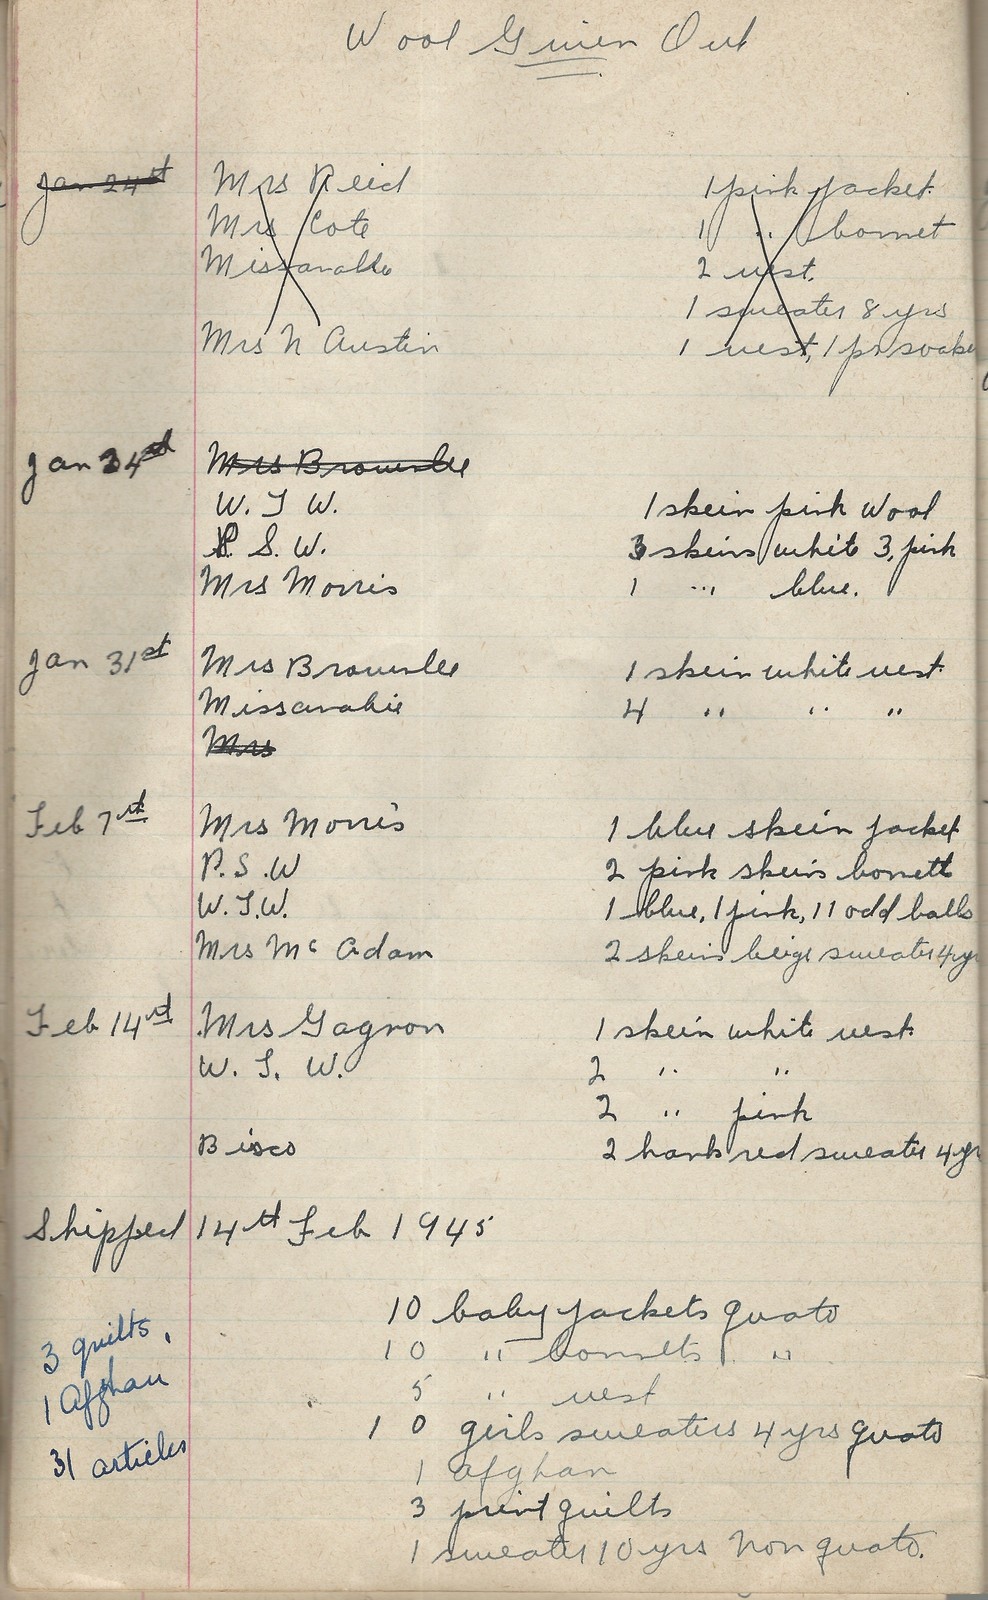 Wool Given Out
Jan 24st Mrs Reid 1 pink jacket
Mrs Cote 1 " bonnet
2 vest.
1 sweater 8 yrs
Mrs N Austin 1 vest, 1 pr soake
Jan 24st Mrs Brownlee
W. S W. 1 skein pink wool
P. S. W. 3 skeins white 3, pink
Mrs Morris 1 " blue.
Jan 31st Mrs Brownlee 1 skein white vest
4 " " "
Mrs
Feb 7st Mrs Morris 1 blue skein jacket
P. S. W 2 pink skeins bonnett
W. S. W. 1 blue, 1 pink, 11 odd balls
Mrs Mc Adam 2 skeins beige sweater 4 y
Feb 14st Mrs Gagnon 1 skein white vest
W. S. W. 2 " "
2 " pink
Bisco 2 hank red sweater 4 y
Shipped 14th Feb 1945
10 baby jackets quato
3 quilts,
10 " bonnets "
1 Afghan
5 " vest
10 girls sweaters 4 yrs quato
31 articles
1 afghan
3 print quilts
1 sweater 10 yrs Non quato.